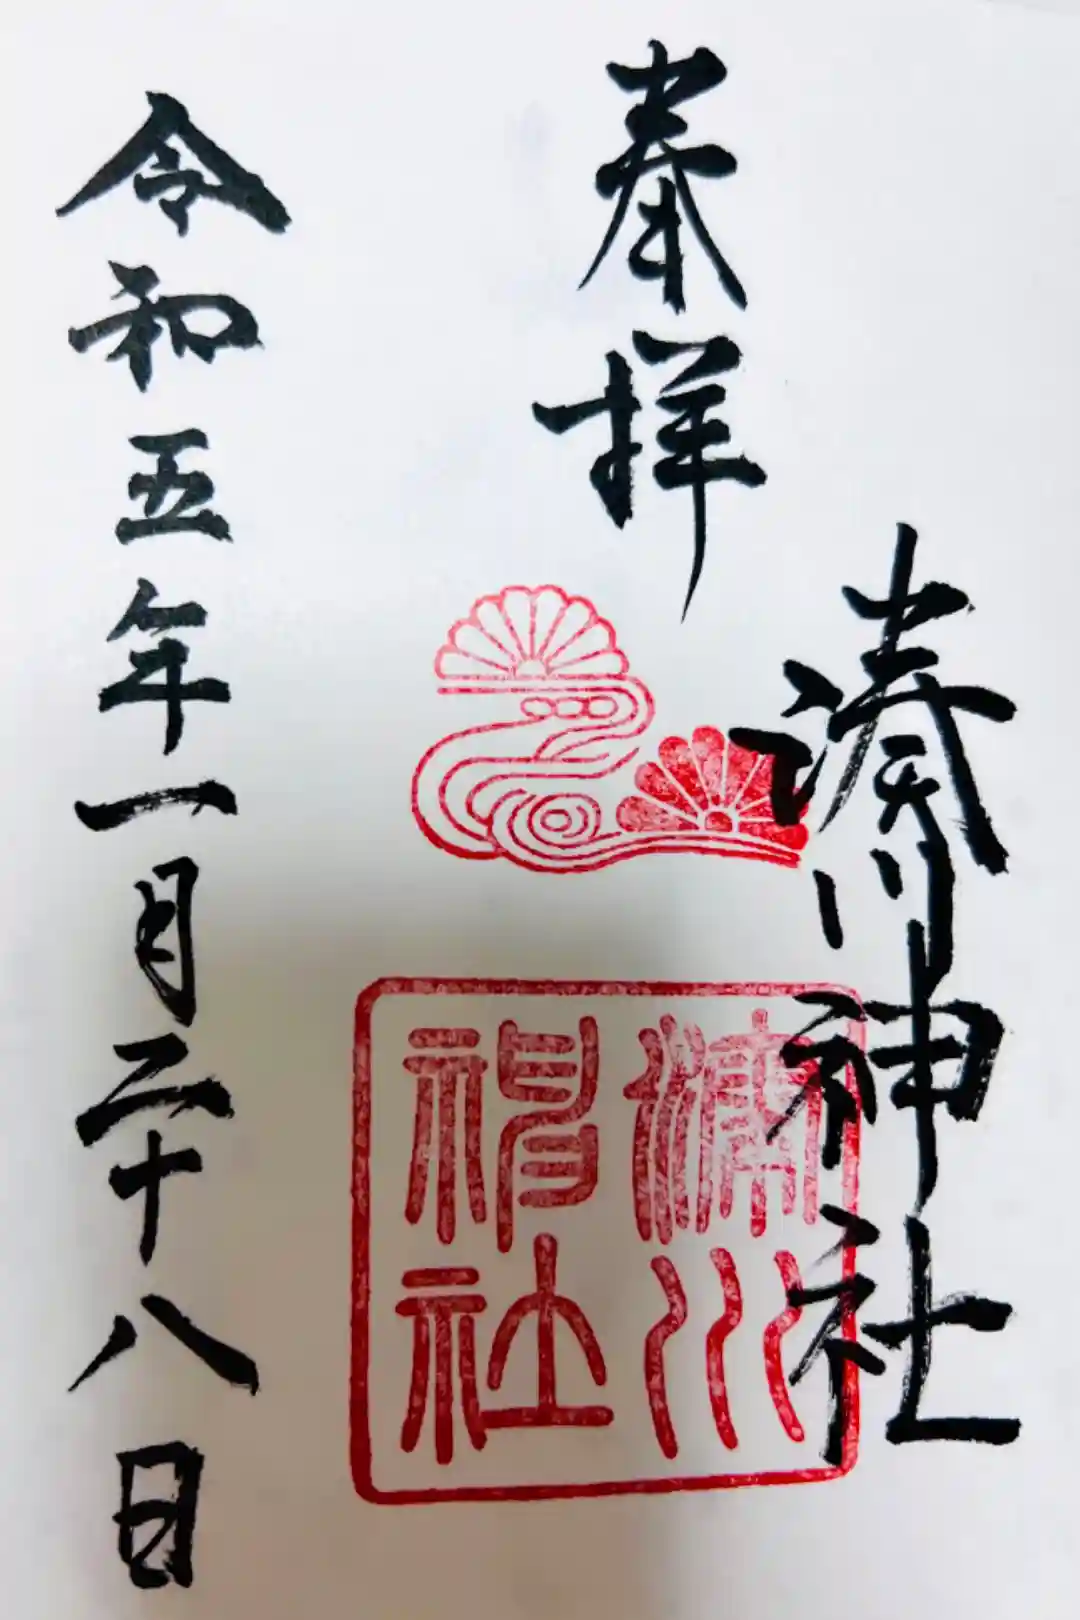 奉拝
湊川神社
湊川神社
令和五年一月二十八日